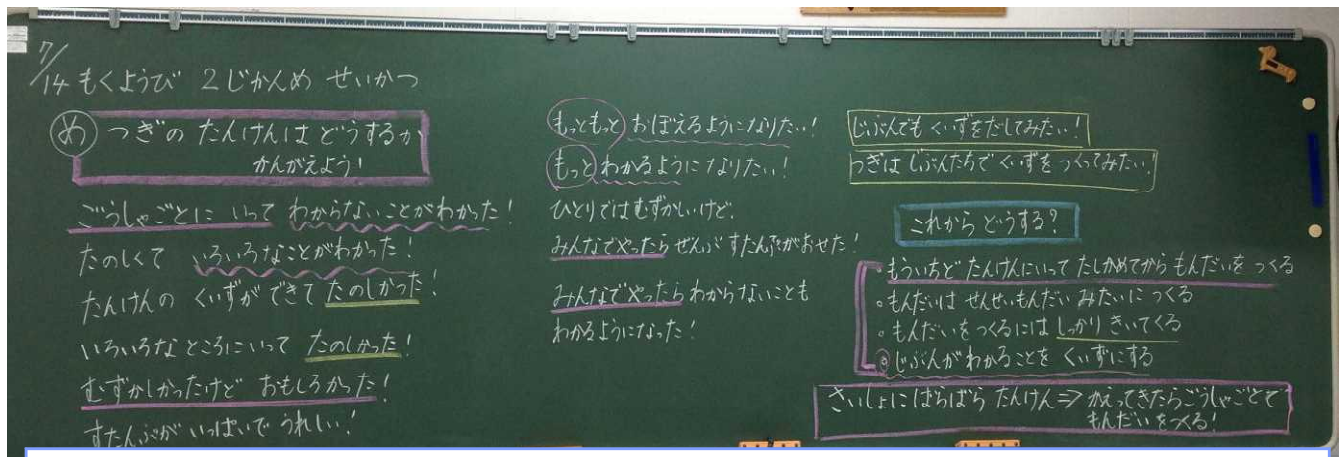 7/14 もくようび 2じかんめ せいかつ
め つぎの たんけんは どうするか
かんがえよう!
ごうしゃごとに いって わからないことがわかった!
たのしくて いろいろなことがわかった!
たんけんの くいずができて たのしかった!
いろいろな ところにいって たのしかった!
むずかしかったけど おもしろかった!
すたんぷが いっぱいで うれしい!
もっともっと おぼえるようになりたい!
もっと わかるように なりたい!
ひとりではむずかしいけど、
みんなでやったら ぜんぶ すたんぷがおせた!
みんなでやったら わからないことも
わかるようになった!
じぶんでも くいずをだしてみたい!
つぎは じぶんたちで くいずを つくってみたい!
これから どうする?
・もういちど たんけんにいって たしかめてから もんだいを つくる
・もんだいは せんせいもんだい みたいに つくる
・もんだいをつくるには しっかり きいてくる
・じぶんがわかることを くいずにする
さいしょに ばらばら たんけん⇒ かえってきたらごうしゃごとで
もんだいをつくる!